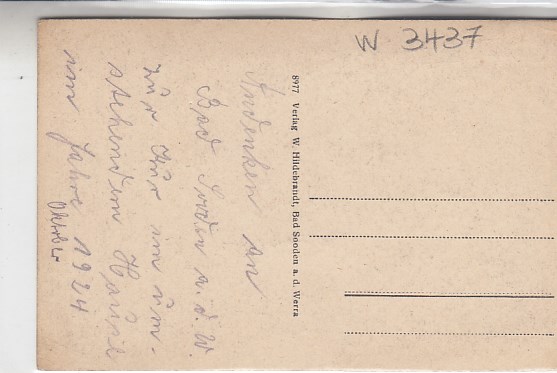 W 3437
8977 Verlag W. Hildebrandt, Bad Sooden a. d. Werra
Andenken an
Bad Sooden a. d. W.
zur Kur im um-
stehendem Hause
im Jahre 1924
Oktober